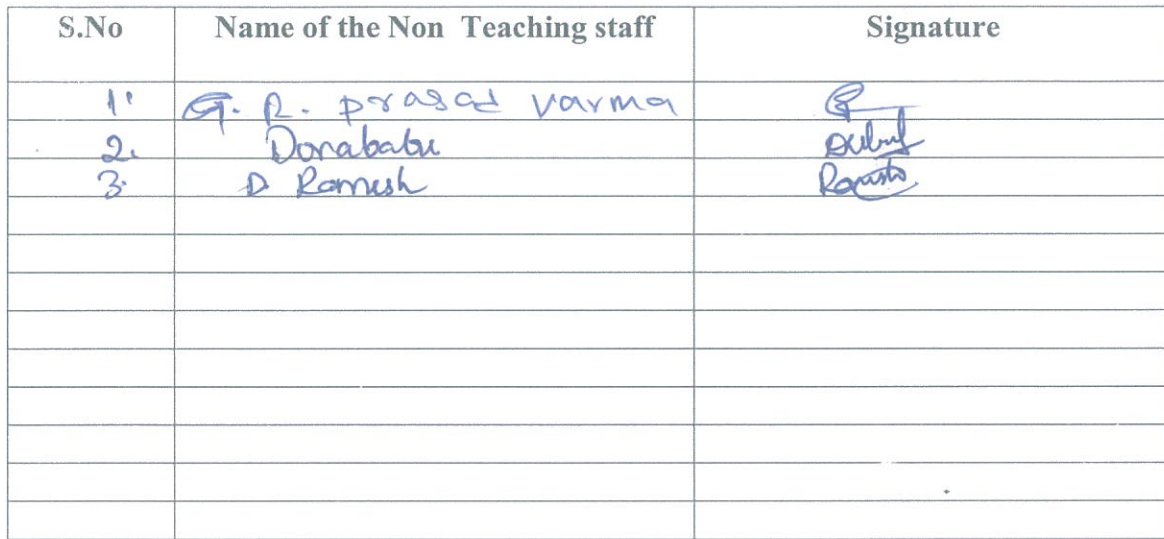 S.No Name of the Non Teaching staff Signature
1. G. R. prasad varma
2. Dorababu
3. D Ramesh Ramesh